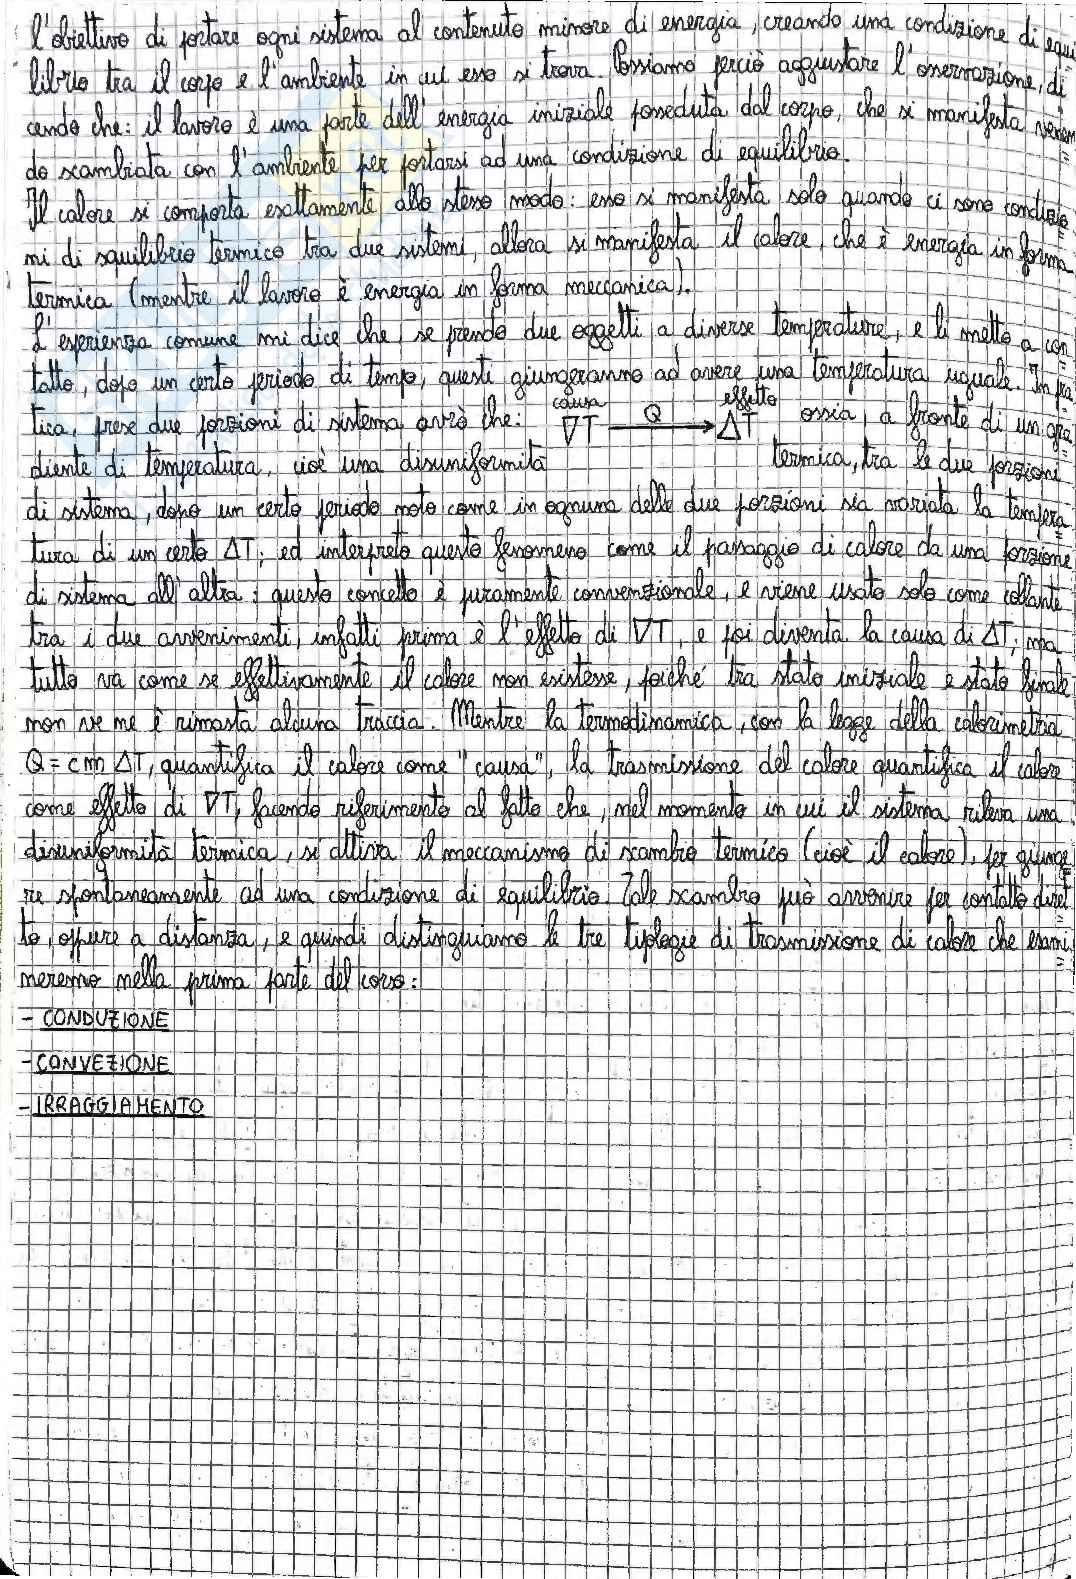 l'obiettivo di portare ogni sistema al contenuto minore di energia, creando una condizione di equi
librio tra il corpo e l'ambiente in cui esso si trova. Possiamo perciò aggiustare l'osservazione, di
cendo che: il lavoro è una parte dell'energia iniziale posseduta dal corpo, che si manifesta venen
do scambiata con l'ambiente per portarsi ad una condizione di equilibrio.
Il calore si comporta esattamente allo stesso modo: esso si manifesta solo quando ci sono condizio
ni di squilibrio termico tra due sistemi, allora si manifesta il calore, che è energia in forma
termica (mentre il lavoro è energia in forma meccanica).
L'esperienza comune mi dice che, se prendo due oggetti a diverse temperature, e li metto a con
tatto, dopo un certo periodo di tempo, questi giungeranno ad avere una temperatura uguale. In pra
causa effetto
tica, prese due porzioni di sistema avrò che: ∇T Q → ΔT ossia, a fronte di un gra
diente di temperatura, cioè una disuniformità termica, tra le due porzioni
di sistema, dopo un certo periodo noto come in ognuna delle due porzioni sia variata la tempera
tura di un certo ΔT; ed interpreto questo fenomeno come il passaggio di calore da una porzione
di sistema all'altra: questo concetto è puramente convenzionale, e viene usato solo come collante
tra i due avvenimenti, infatti prima è l'effetto di ∇T, e poi diventa la causa di ΔT; ma
tutto va come se effettivamente il calore non esistesse, poiché tra stato iniziale e stato finale
non ve ne è rimasta alcuna traccia. Mentre la termodinamica, con la legge della calorimetria
Q = c m ΔT, quantifica il calore come "causa", la trasmissione del calore quantifica il calore
come effetto di ∇T, facendo riferimento al fatto che, nel momento in cui il sistema rileva una
disuniformità termica, si attiva il meccanismo di scambio termico (cioè il calore), per giunge
re spontaneamente ad una condizione di equilibrio. Tale scambio può avvenire per contatto diret
to, oppure a distanza, e quindi distinguiamo le tre tipologie di trasmissione di calore che esami
neremo nella prima parte del corso:
- CONDUZIONE
- CONVEZIONE
- IRRAGGIAMENTO